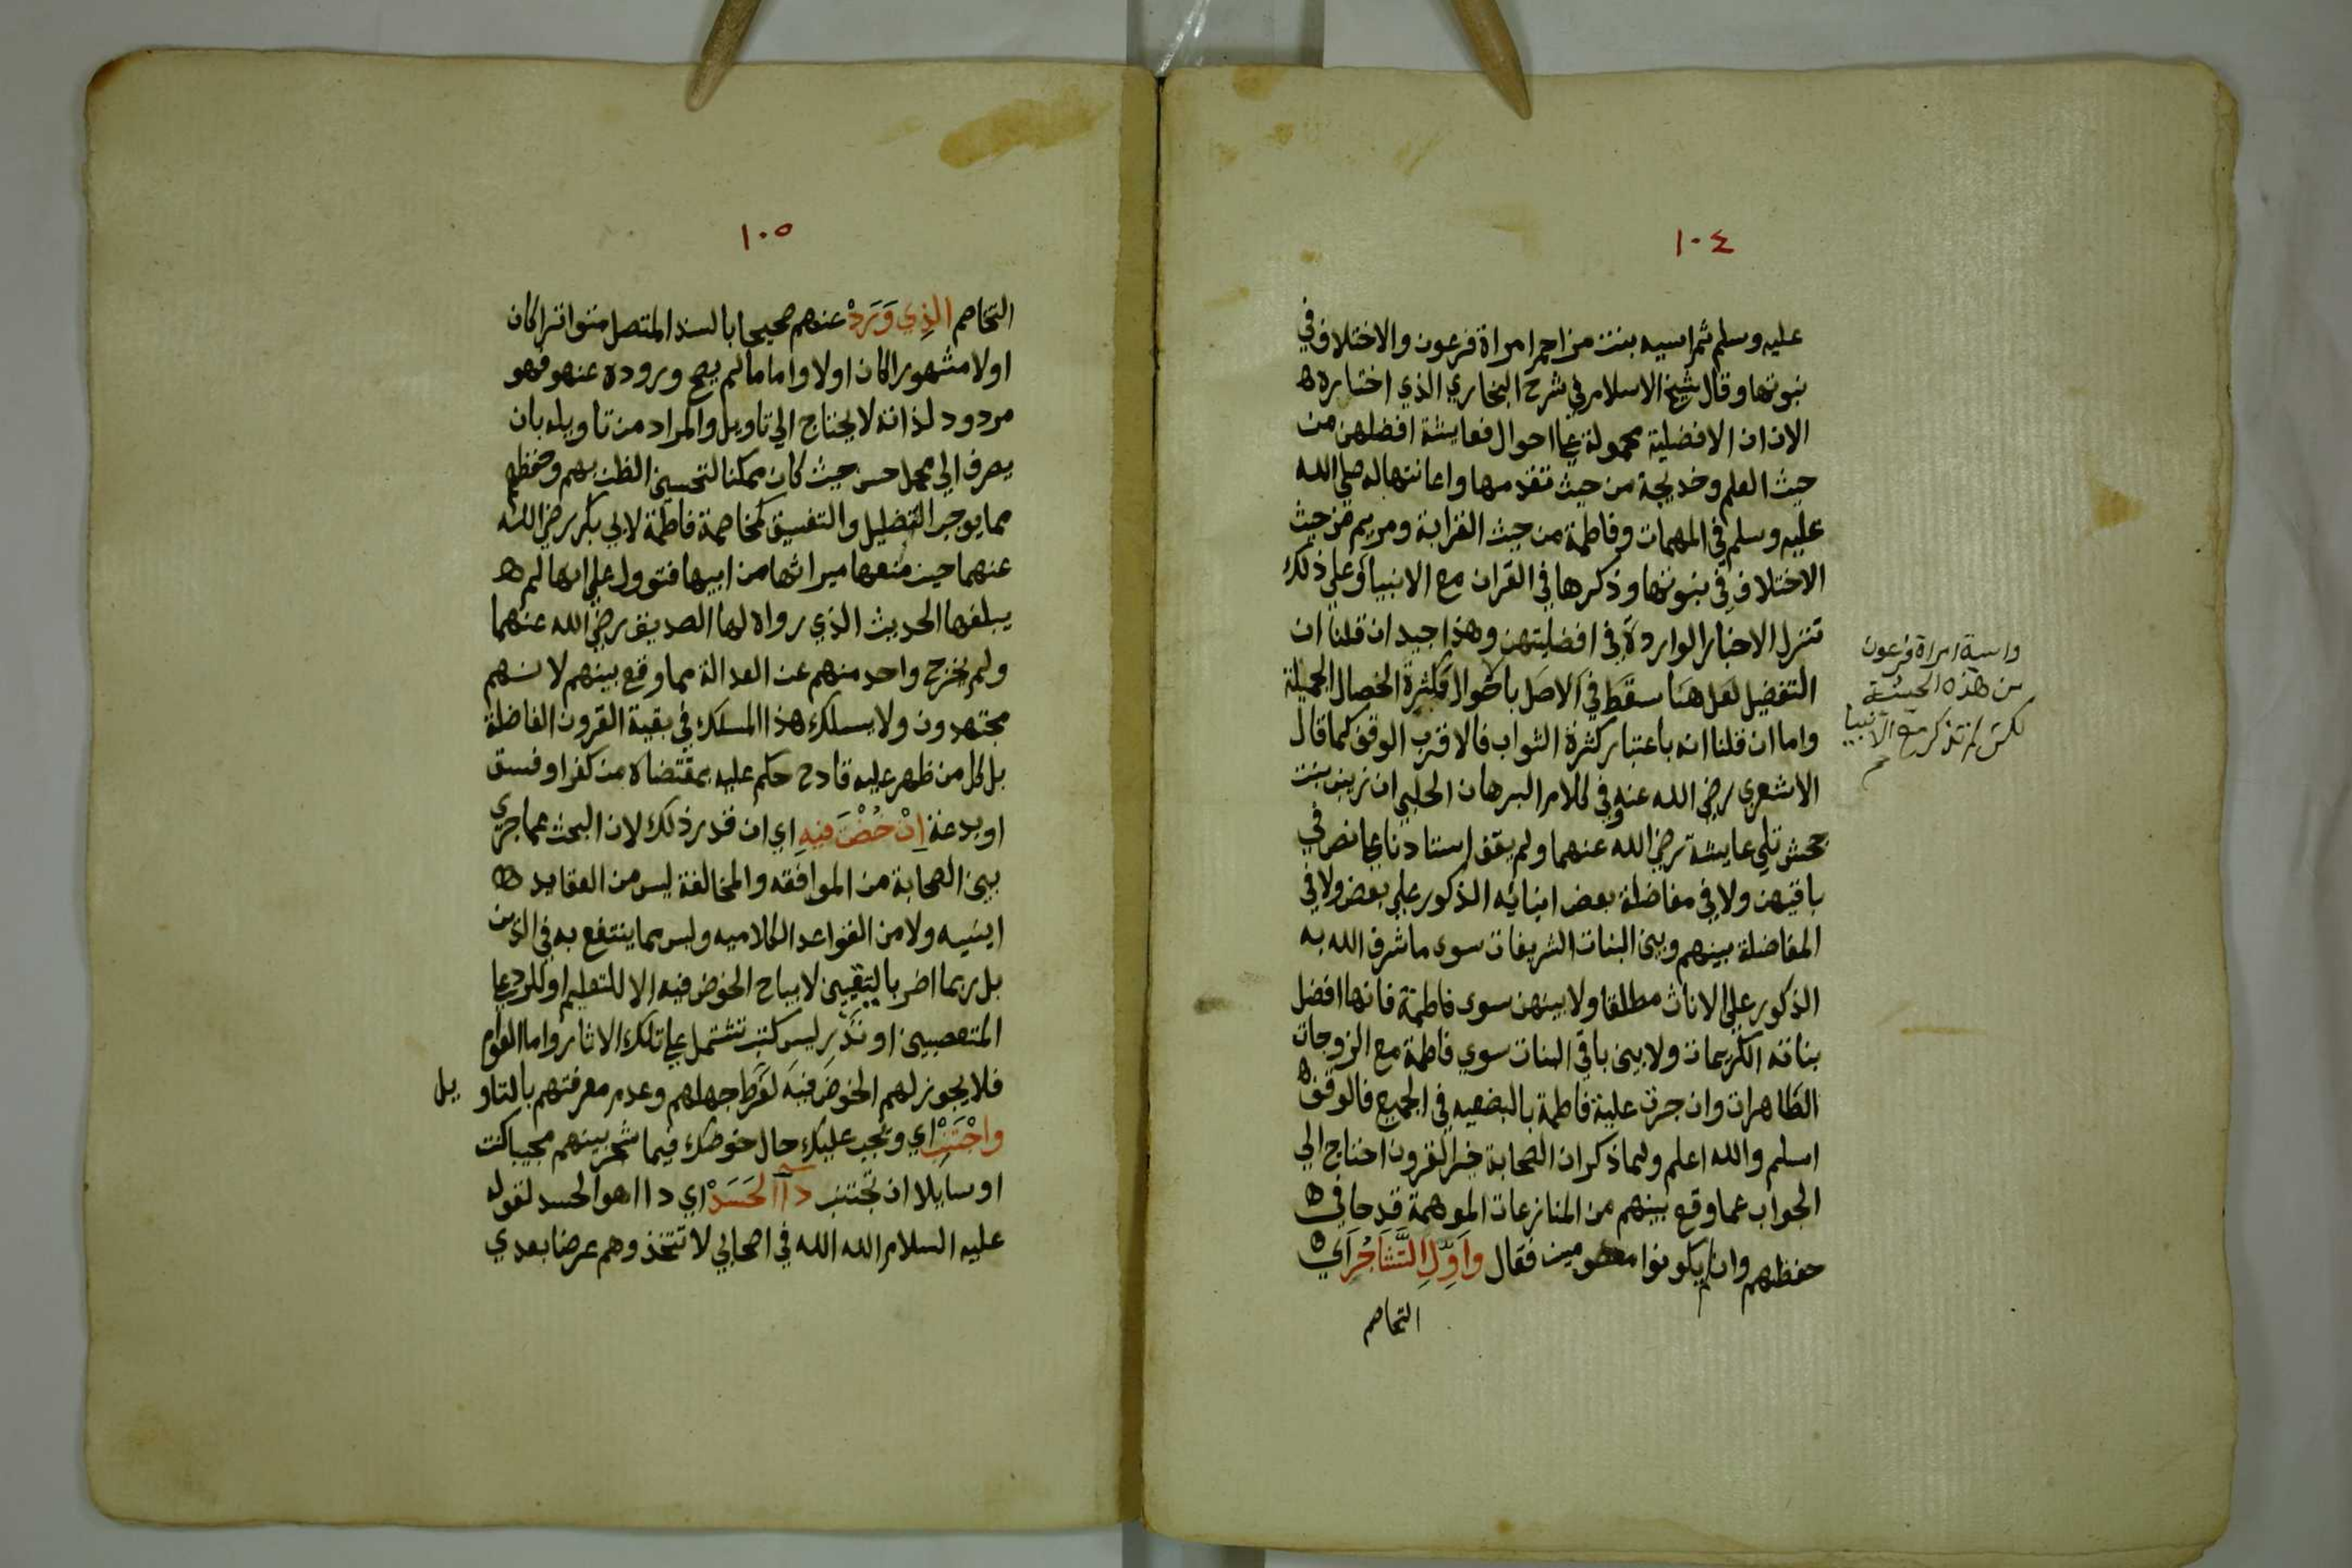 ١٠٤
عليه وسلم ثم اسيه بنت مزاحم امراة فرعون والاختلاف في
نبوتها وقال شيخ الاسلام في شرح البخاري الذي اختاره
الان ان الافضلية محمولة علي احوال فعايشة افضلهن من
حيث العلم وخديجة من حيث تقدمها واعانتها له صلي الله
عليه وسلم في المهمات وفاطمة من حيث القرابة ومريم من حيث
الاختلاف في نبوتها وذكرها في القران مع الانبيا وعلي ذلك
تنزل الاخبار الواردة في افضليتهن وهذا جيد ان قلنا ان
التفضيل لعل هنا سقط في الاصل بالاحوال وكثرة الخصال الجميلة
واما ان قلنا انه باعتبار كثرة الثواب فالاقرب الوقف كما قال
الاشعري رضي الله عنه وفي كلام البرهان الحلبي ان زينب بنت
جحش تلي عايشة رضي الله عنهما ولم يقف استادنا علي نص في
باقيهن ولا في مفاضلة بعض ابنائه الذكور علي بعض ولا في
المفاضلة بينهم وبين البنات الشريفات سوي ما شرف الله به
الذكور علي الاناث مطلقا ولا بينهن سوي فاطمة فانها افضل
بناته الكريمات ولا بين باقي البنات سوي فاطمة مع الزوجات
الطاهرات وان جرت علية فاطمة بالبضعيه في الجميع فالوقف
اسلم والله اعلم ولما ذكر ان الصحابة خير القرون احتاج الي
الجواب عما وقع بينهم من المنازعات الموهمة قدحا في
حفظهم وان لم يكونوا معصومين فقال وَاَوِّلِ التَّشَاجُرَ اي
التخاصم
واسية امراة فرعون
من هذه الحيثية
لكن لم تذكر مع الانبيا
١٠٥
التخاصم الذِي وَرَدْ عنهم صحيحا بالسند المتصل متواترا كان
اولا مشهورا كان اولا واما ما لم يصح وروده عنهم فهو
مردود لذاته لا يحتاج الي تاويل والمراد من تاويله بان
يصرف الي محمل حسن حيث كان ممكنا لتحسين الظن بهم وحفظهم
مما يوجب التضليل والتفسيق كمخاصمة فاطمة لابي بكر رضي الله
عنهما حين منعها ميراثها من ابيها فتوول علي انها لم
يبلغها الحديث الذي رواه لها الصديق رضي الله عنهما
ولم يخرج واحد منهم عن العدالة مما وقع بينهم لانهم
مجتهدون ولا يسلك هذا المسلك في بقية القرون الفاضلة
بل كل من ظهر عليه قادح حكم عليه بمقتضاه من كفر او فسق
او بدعة اِنْ خُضْتَ فيهِ اي ان قدر ذلك لان البحث عما جري
بين الصحابة من الموافقه والمخالفة ليس من العقايد
اينيه ولا من القواعد الكلاميه وليس مما ينتفع به في الدين
بل ربما اضر باليقين لا يباح الخوض فيه الا للتعليم او للرد علي
المتعصبين او تدريس كتب تشتمل علي تلك الاثار واما العوام
فلا يجوز لهم الخوض فيه لفرط جهلهم وعدم معرفتهم بالتاويل
واجْتَنِبْ اي وتجب عليك حال خوضك فيما شجر بينهم مجيبا كنت
او سايلا ان تجتنب داآ الحَسَدْ اي داا هو الحسد لقوله
عليه السلام الله الله في اصحابي لا تتخذوهم عرضا بعدي